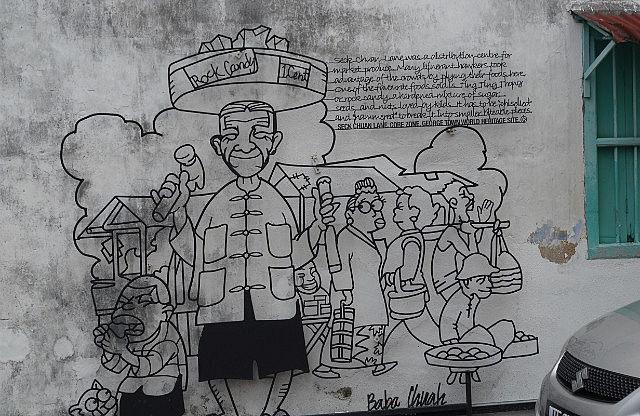 Rock Candy
1 Cent
Seck Chuan Lane was a distribution centre for
market produce. Many itinerant hawkers took
advantage of the crowds by plying their foods here.
One of the favourite foods sold is Ting Ting Thong
or rock candy, a hardened mixture of sugar,
seeds and nuts loved by kids. It has to be chiselled
and "hammered" to break it into smaller bitesize pieces.
SECK CHUAN LANE, CORE ZONE, GEORGE TOWN WORLD HERITAGE SITE.
Baba Chuah